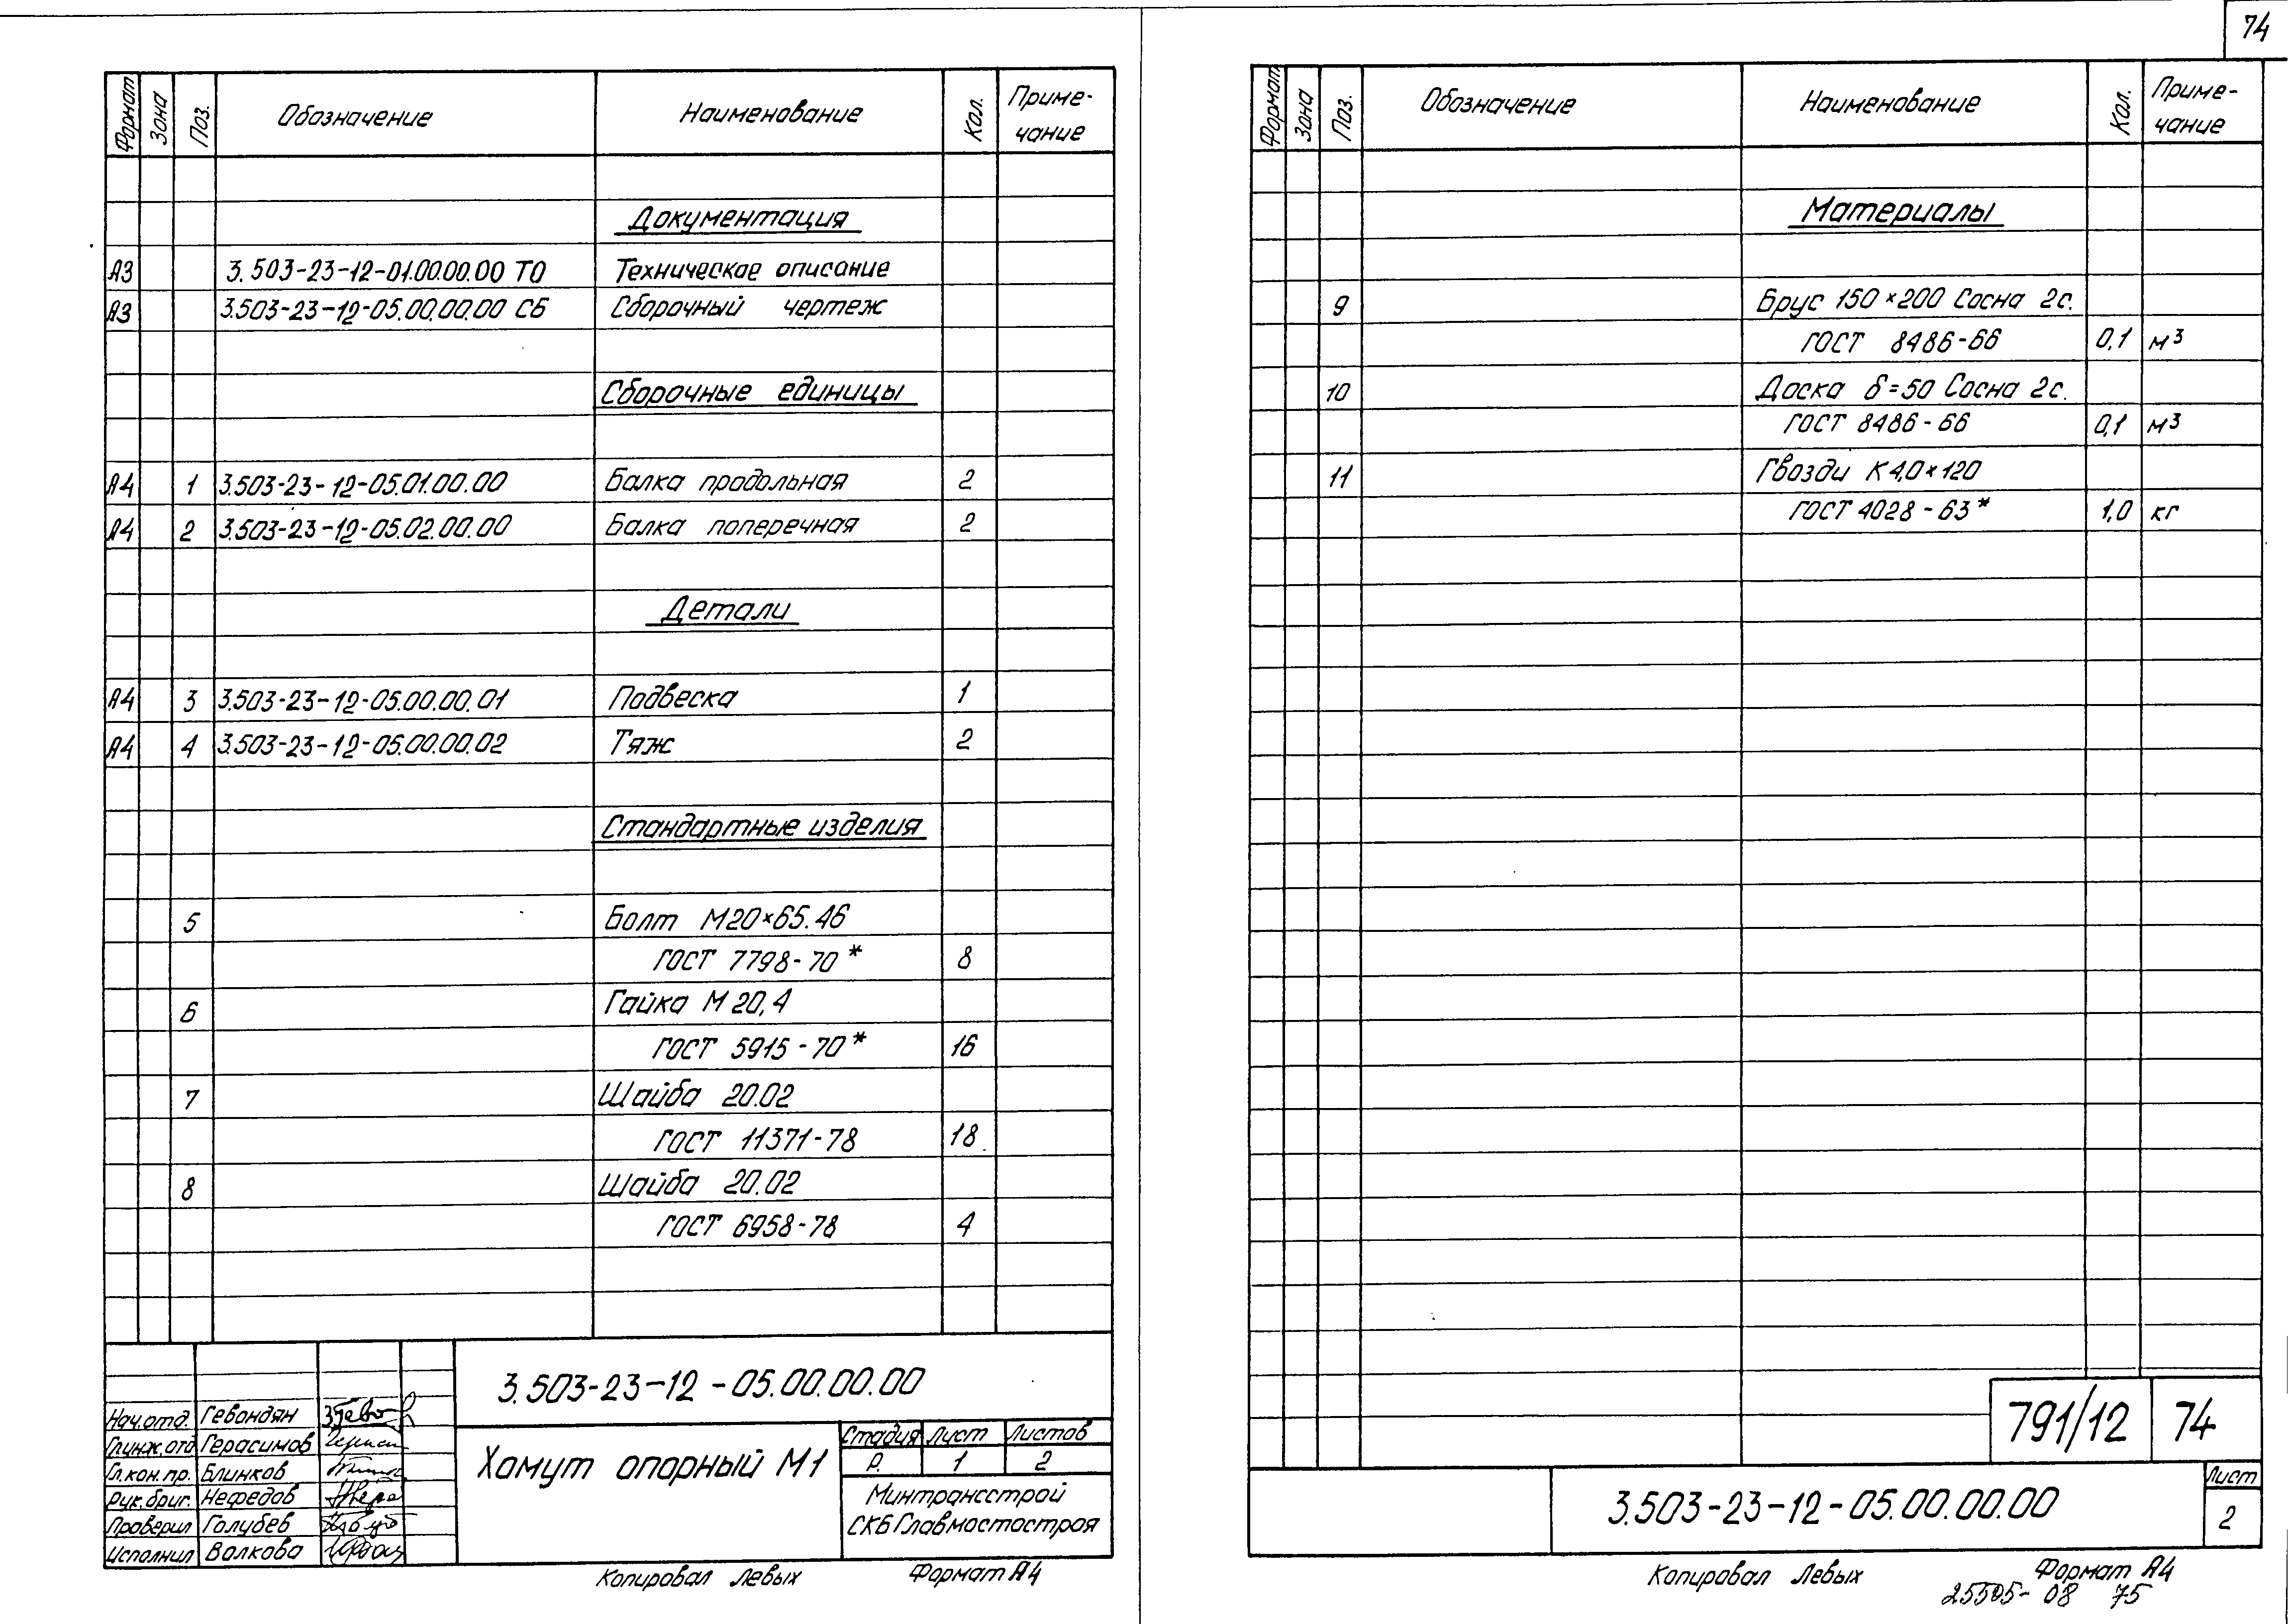 74
Формат Зона Поз. Обозначение Наименование Кол. Приме-
чание
Документация
А3 3.503-23-12-01.00.00.00 ТО Техническое описание
А3 3.503-23-12-05.00.00.00 СБ Сборочный чертеж
Сборочные единицы
А4 1 3.503-23-12-05.01.00.00 Балка продольная 2
А4 2 3.503-23-12-05.02.00.00 Балка поперечная 2
Детали
А4 3 3.503-23-12-05.00.00.01 Подвеска 1
А4 4 3.503-23-12-05.00.00.02 Тяж 2
Стандартные изделия
5 Болт М20×65.46
ГОСТ 7798-70* 8
6 Гайка М20,4
ГОСТ 5915-70* 16
7 Шайба 20.02
ГОСТ 11371-78 18
8 Шайба 20.02
ГОСТ 6958-78 4
3.503-23-12-05.00.00.00
Нач.отд. Гевондян
Гл.инж.отд Герасимов
Гл.кон.пр. Блинков
Рук.бриг. Нефедов
Проверил Голубев
Исполнил Волкова
Хомут опорный М1
Стадия Лист Листов
Р. 1 2
Минтрансстрой
СКБ Главмостостроя
Копировал Левых Формат А4
Формат Зона Поз. Обозначение Наименование Кол. Приме-
чание
Материалы
9 Брус 150×200 Сосна 2с.
ГОСТ 8486-66 0,1 м³
10 Доска δ=50 Сосна 2с.
ГОСТ 8486-66 0,1 м³
11 Гвозди К4,0×120
ГОСТ 4028-63* 1,0 кг
791/12 74
3.503-23-12-05.00.00.00
Лист
2
Копировал Левых Формат А4
25505-08 75